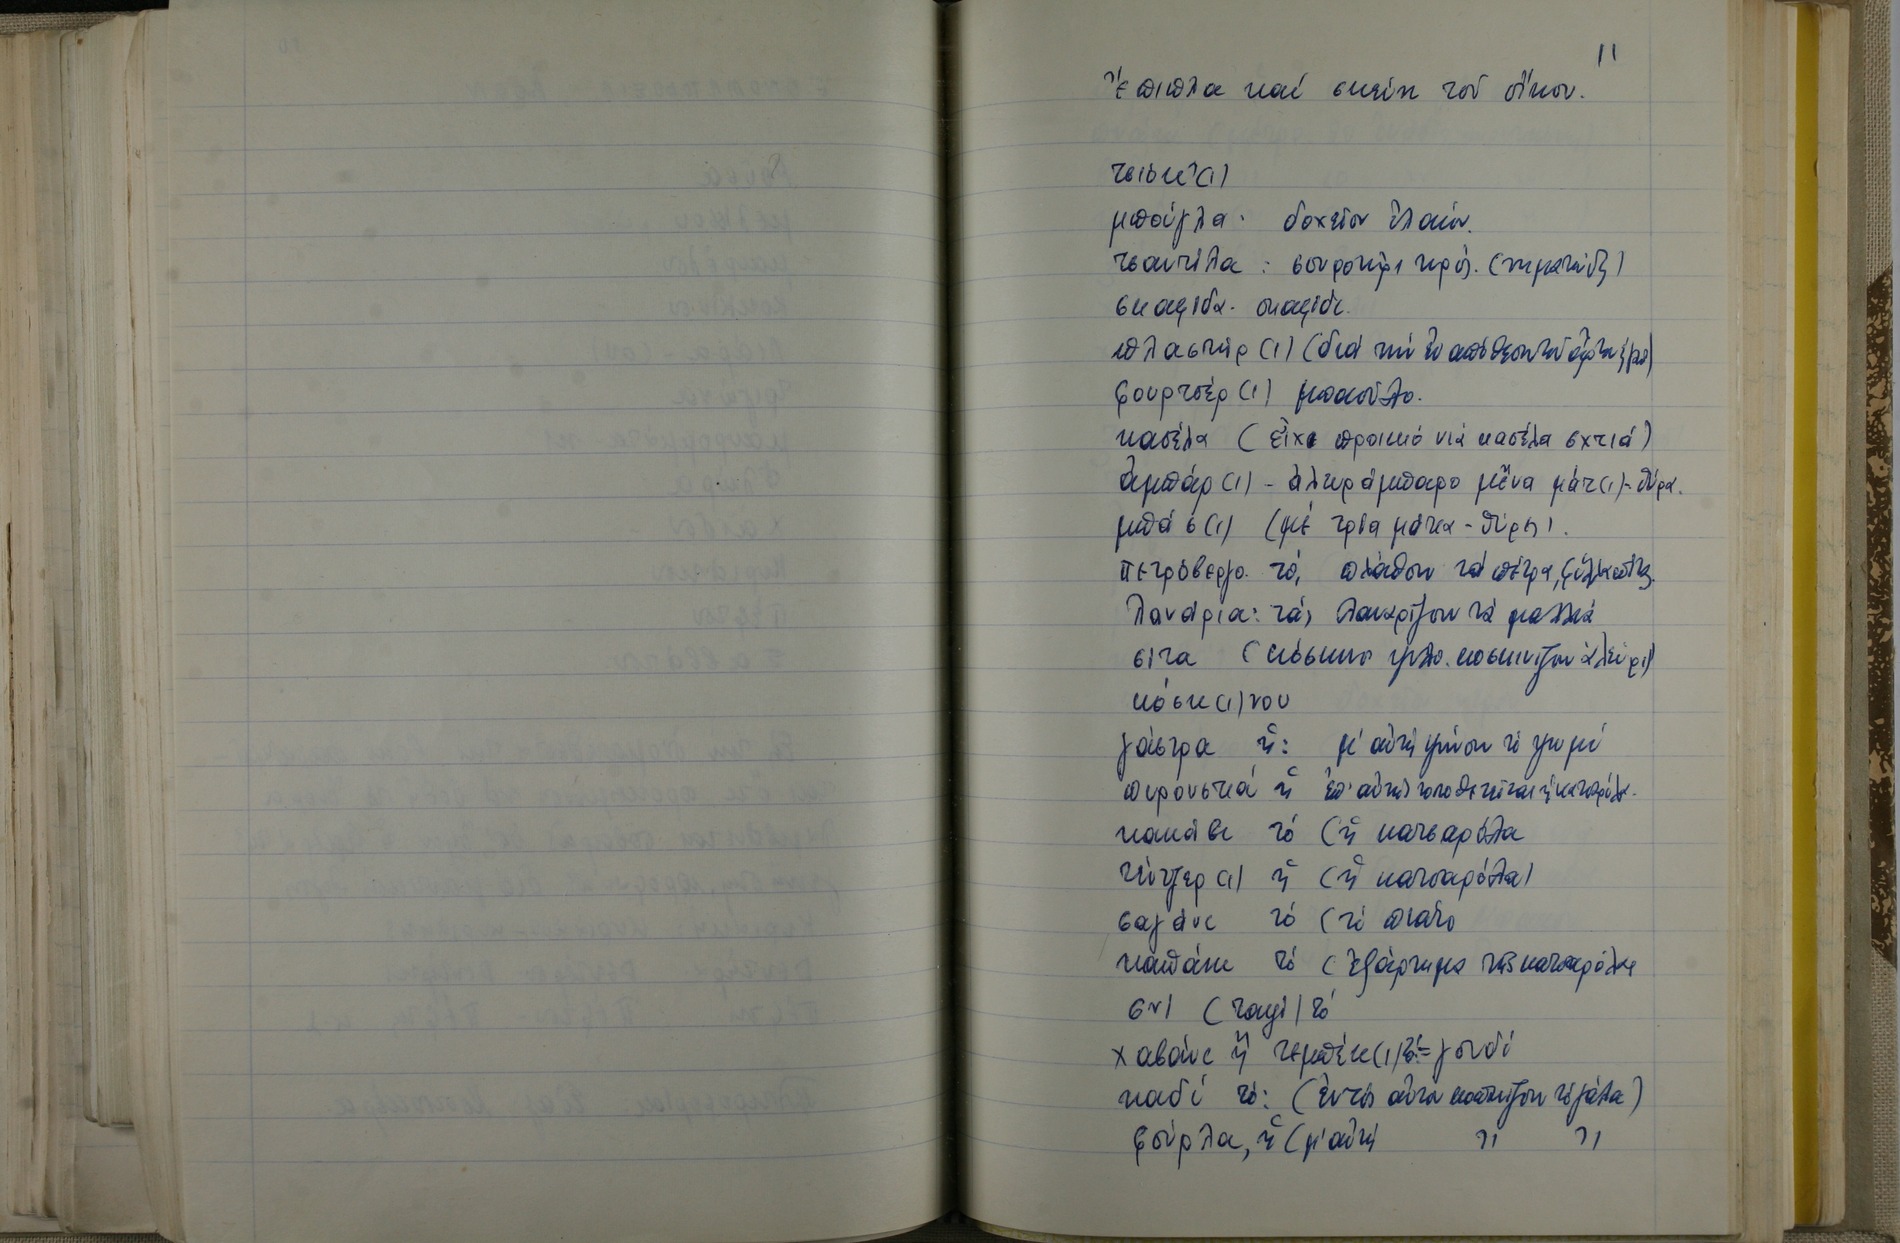 11
Ἔπιπλα καί σκεύη τοῦ οἴκου.
τσιόκ(ι)
μπούγλα· δοχεῖον ἐλαίου.
τσαντίλα: σουρωτήρι τυρ.
σκαφίδα· σκαφίδι.
πλαστήρ(ι) (διά τήν ἐναπόθεσιν τοῦ
φουρτσέρ(ι) μπαοῦλο.
κασέλα (εἶχε προικιό νιά κασέλα σχτιά)
ἀμπάρ(ι) - ἀλευράμπαρο μἔνα μάτ(ι)- θύρα.
μπάσ(ι) (μέ τρία μάτια - θύρες).
πετρόβεργο τό,
λανάρια: τά, λαναρίζουν τά μαλλιά
σίτα (κόσκινο ψιλό. κοσκινίζουν ἀλεύρι)
κόσκ(ι)νου
γάστρα ἡ: μ' αὐτή ψήνουν τό ψωμί
πυρουστιά ἡ ἐπ' αὐτῆς τοποθετεῖται ἡ κατσαρόλα.
κακάβι τό (ἡ κατσαρόλα
τέντζερ(ι) ἡ (ἡ κατσαρόλα)
σαγάνι τό (τό πιάτο
καπάκι τό (ἐξάρτημα τῆς κατσαρόλας
σνί (ταψί) τό
χαβάνι ἤ τεμπέκ(ι) τό= γουδί
καδί τό: (ἐντός αὐτοῦ κοπανίζουν τό γάλα)
φούρλα, ἡ (μ' αὐτή " "